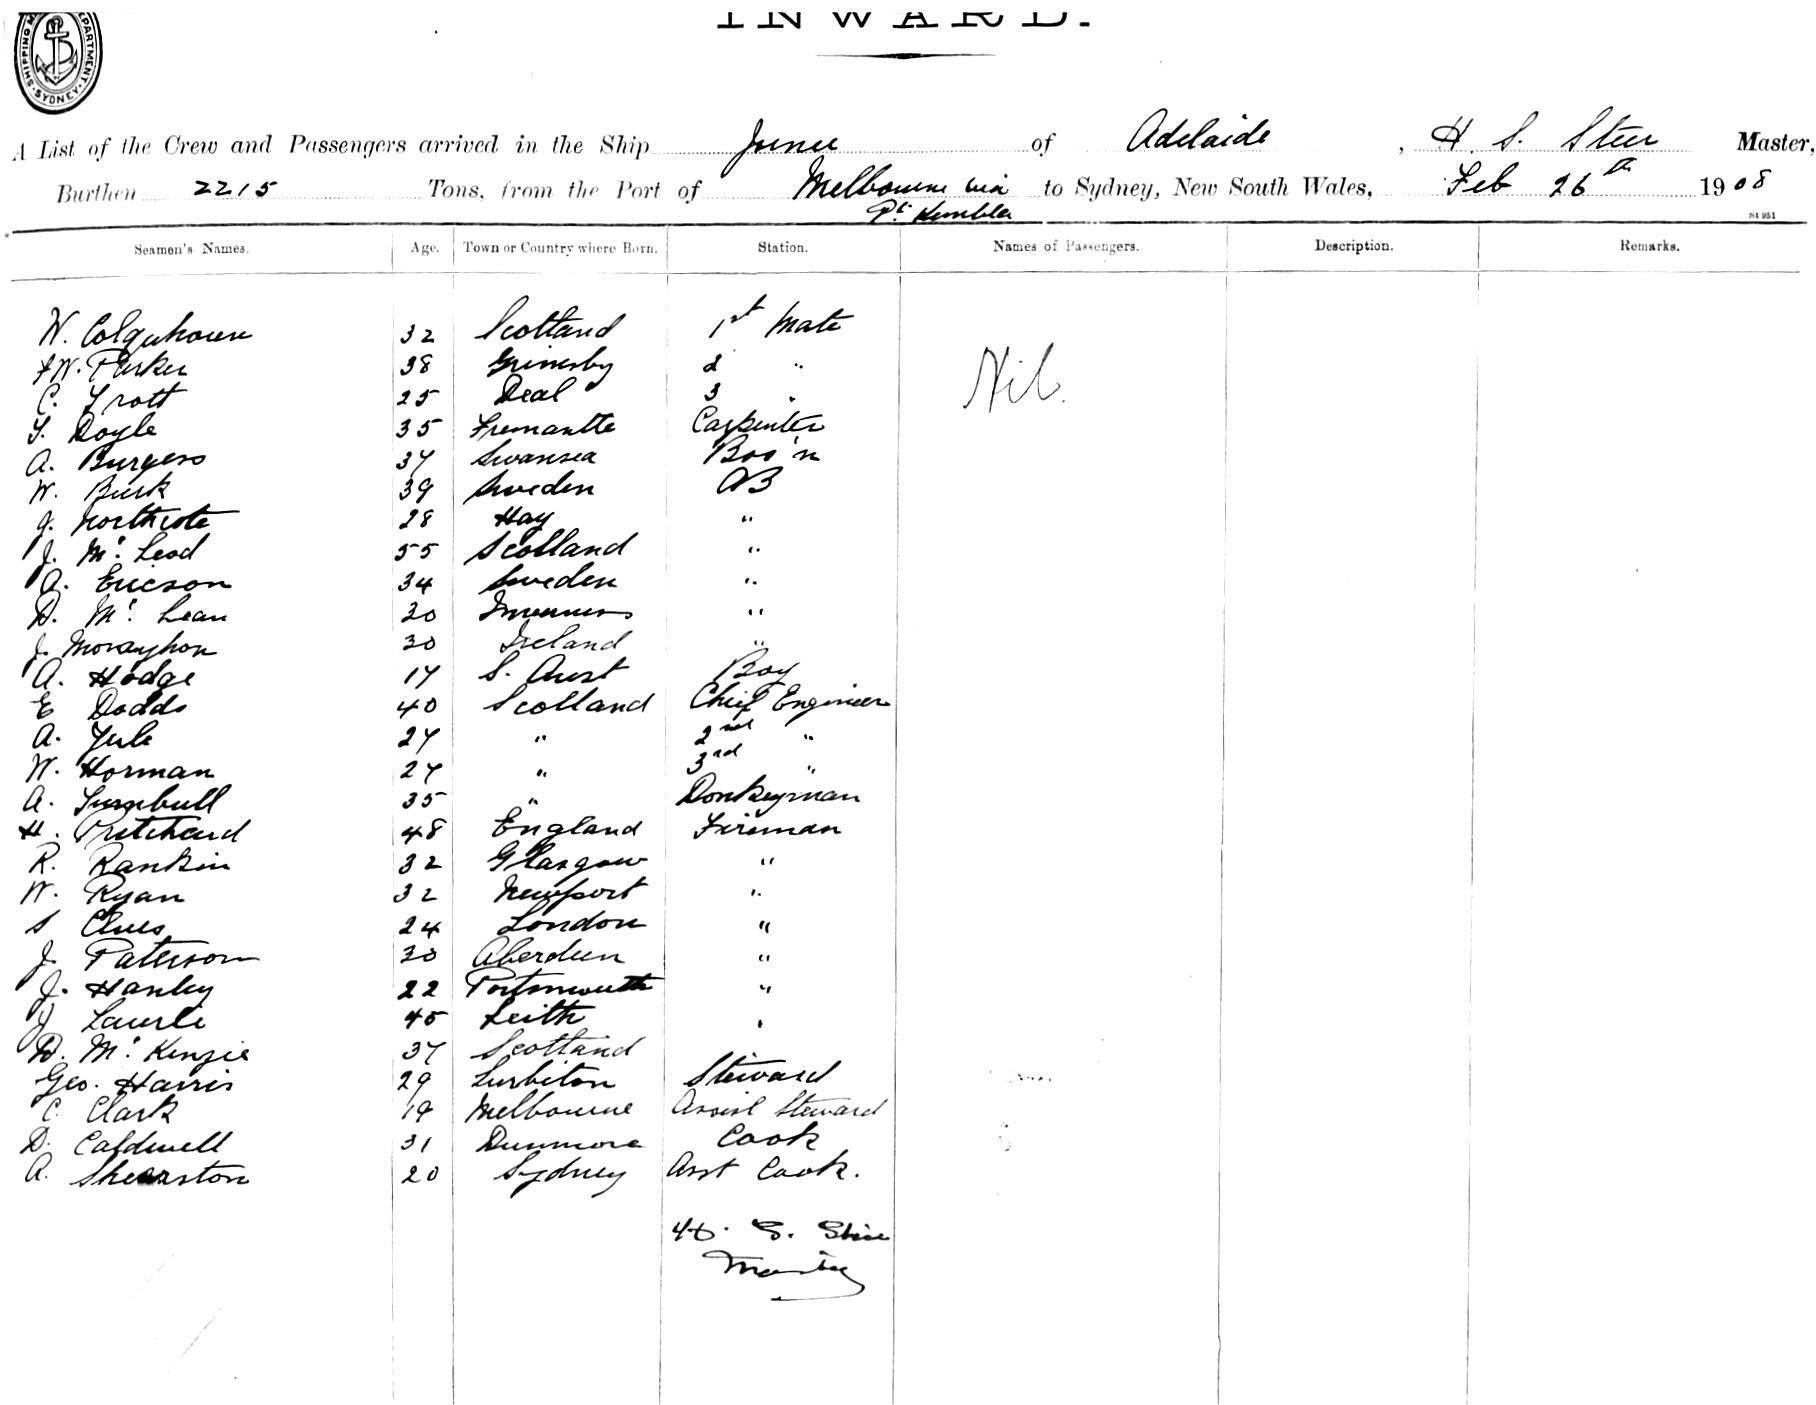 INWARD.
SHIPPING DEPARTMENT. SYDNEY.
A List of the Crew and Passengers arrived in the Ship Junee of Adelaide, H. S. Steer Master,
Burthen 2215 Tons, from the Port of Melbourne via to Sydney, New South Wales, Feb 26th 1908
Pt Kembla
S4951
Seamen's Names. Age. Town or Country where Born. Station. Names of Passengers. Description. Remarks.
W. Colquhoun 32 Scotland 1st Mate
F W. Parker 38 Grimsby 2 "
Nil.
C. Trott 25 Deal 3 "
T. Doyle 35 Fremantle Carpenter
A. Burgess 37 Swansea Bos'n
W. Burk 39 Sweden AB
J. Northcote 28 Hay "
J. Mc Leod 55 Scotland "
A. Ericson 34 Sweden "
D. Mc Lean 30 Inverness "
J. 30 Ireland "
A. Hodge 17 S. Aust Boy
E Dodds 40 Scotland Chief Engineer
A. Yule 27 " 2nd "
W. Horman 27 " 3rd "
A. Turnbull 35 " Donkeyman
H. Pritchard 48 England Fireman
R. Rankin 32 Glasgow "
W. Ryan 32 Newport "
S Clues 24 London "
J. Paterson 30 Aberdeen "
J. Hanley 22 Portsmouth "
J 45 Leith "
D. Mc Kenzie 37 Scotland
Geo. Harris 29 Surbiton Steward
C. Clark 19 Melbourne Assist Steward
D. Caldwell 31 Dunmore Cook
A. Shearston 20 Sydney Asst Cook.
H. S. Steer
Master